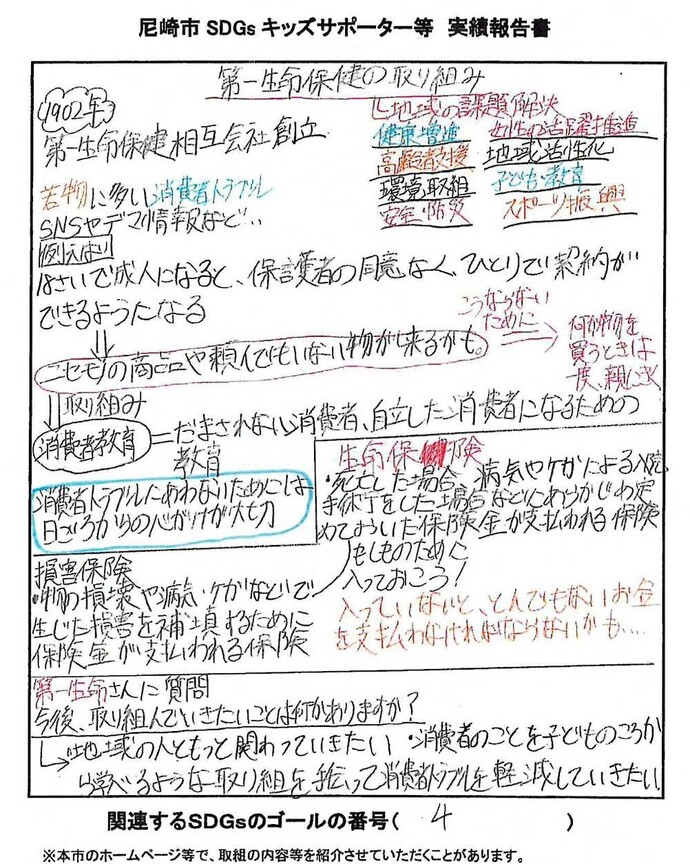 尼崎市 SDGs キッズサポーター等 実績報告書
第一生命保健の取り組み
1902年
第一生命保健相互会社創立
↳地域の課題解決
健康増進 女性の活躍推進
高齢者支援 地域活性化
環境取組 子ども・教育
安全・防災 スポーツ振興
若物に多い消費者トラブル
SNSやデマ情報など…
例えば
18さいで成人になると、保護者の同意なく、ひとりで契約が
できるようになる
⇓
ニセモノの商品や頼んでもいない物が来るかも。
こうならない
ために
⇒
何か物を
買うときは
一度、親に
⇓取り組み
消費者教育=だまされない消費者、自立した消費者になるための
教育
消費者トラブルにあわないためには
日ごろからの心がけが大切
生命保険
・死亡した場合、病気やケガによる入院
手術をした場合などにあらかじめ定
めておいた保険金が支払われる保険
もしものために
入っておこう!
入っていないと、とんでもないお金
を支払わなければならないかも....
損害保険
・物の損壊や病気・ケガなどいで
生じた損害を補填するために
保険金が支払われる保険
第一生命さんに質問
今後、取り組んでいきたいことは何がありますか?
↳・地域の人ともっと関わっていきたい ・消費者のことを子どものころか
ら学べるような取り組を手伝って消費者トラブルを軽減していきたい
関連するSDGsのゴールの番号( 4 )
※本市のホームページ等で、取組の内容等を紹介させていただくことがあります。